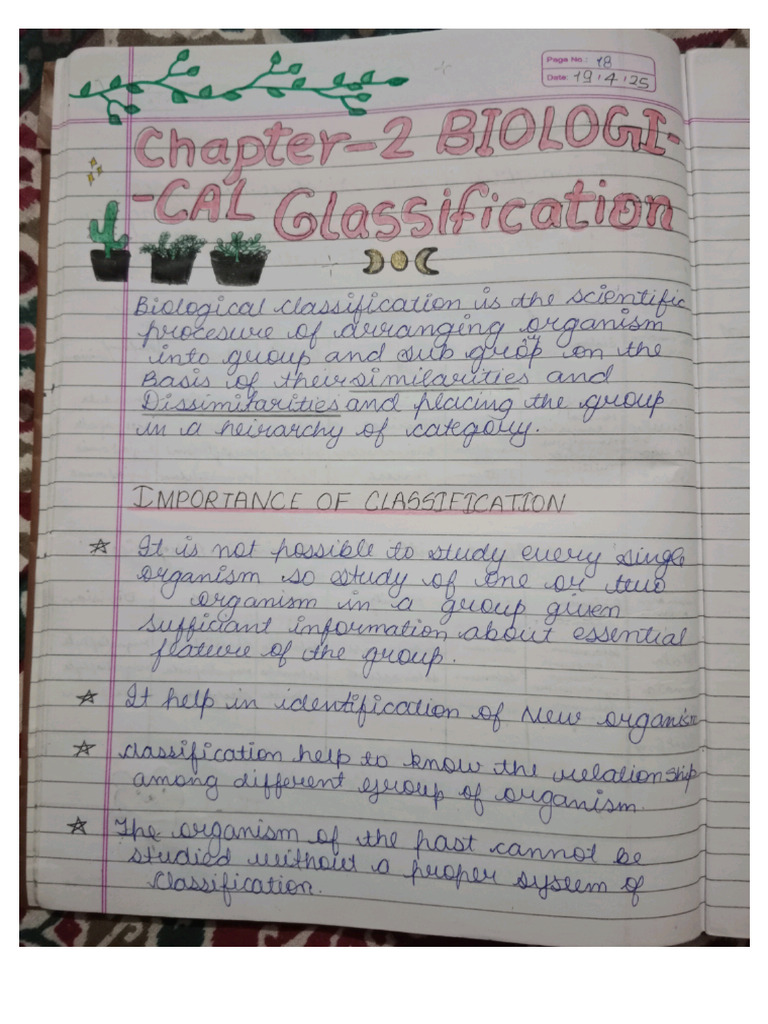 Page No.: 18
Date: 19.4.25
Chapter-2 BIOLOGI-
-CAL Classification
Biological classification is the scientific
procesure of arranging organism
into group and sub grop on the
Basis of their similarities and
Dissimitarities and placing the group
in a heirarchy of category.
IMPORTANCE OF CLASSIFICATION
It is not possible to study every single
organism so study of one or two
organism in a group given
sufficiant information about essential
feature of the group.
It help in identification of New organism
classification help to know the relationship
among different group of organism.
The organism of the past cannot be
studied without a proper system of
classification.